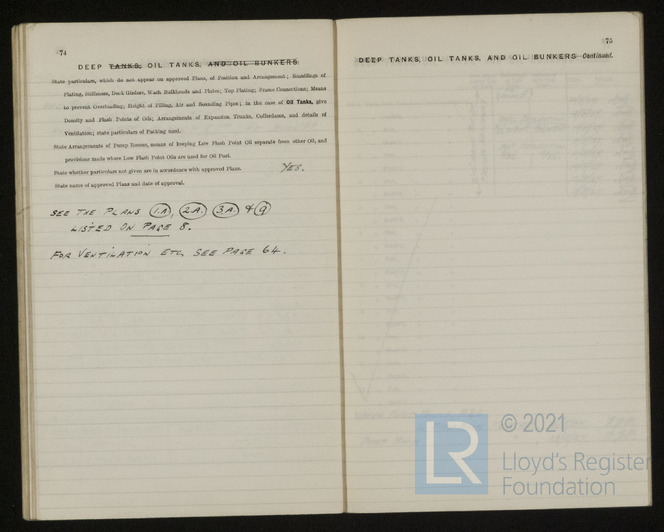 74
DEEP TANKS, OIL TANKS, AND OIL BUNKERS
State particulars, which do not appear on approved Plans, of Position and Arrangement; Scantlings of
Plating, Stiffeners, Deck Girders, Wash Bulkheads and Plates; Top Plating; Frame Connections; Means
to prevent Overloading; Height of Filling, Air and Sounding Pipes; in the case of Oil Tanks, give
Density and Flash Points of Oils; Arrangements of Expansion Trunks, Cofferdams, and details of
Ventilation; state particulars of Packing used.
State Arrangements of Pump Rooms, means of keeping Low Flash Point Oil separate from other Oil, and
provisions made where Low Flash Point Oils are used for Oil Fuel.
State whether particulars not given are in accordance with approved Plans. YES.
State name of approved Plans and date of approval.
SEE THE PLANS 1.A, 2.A. 3.A. & 9
LISTED ON PAGE 8.
FOR VENTILATION ETC. SEE PAGE 64.
75
DEEP TANKS, OIL TANKS, AND OIL BUNKERS—Continued.
LR
© 2021
Lloyd's Register
Foundation